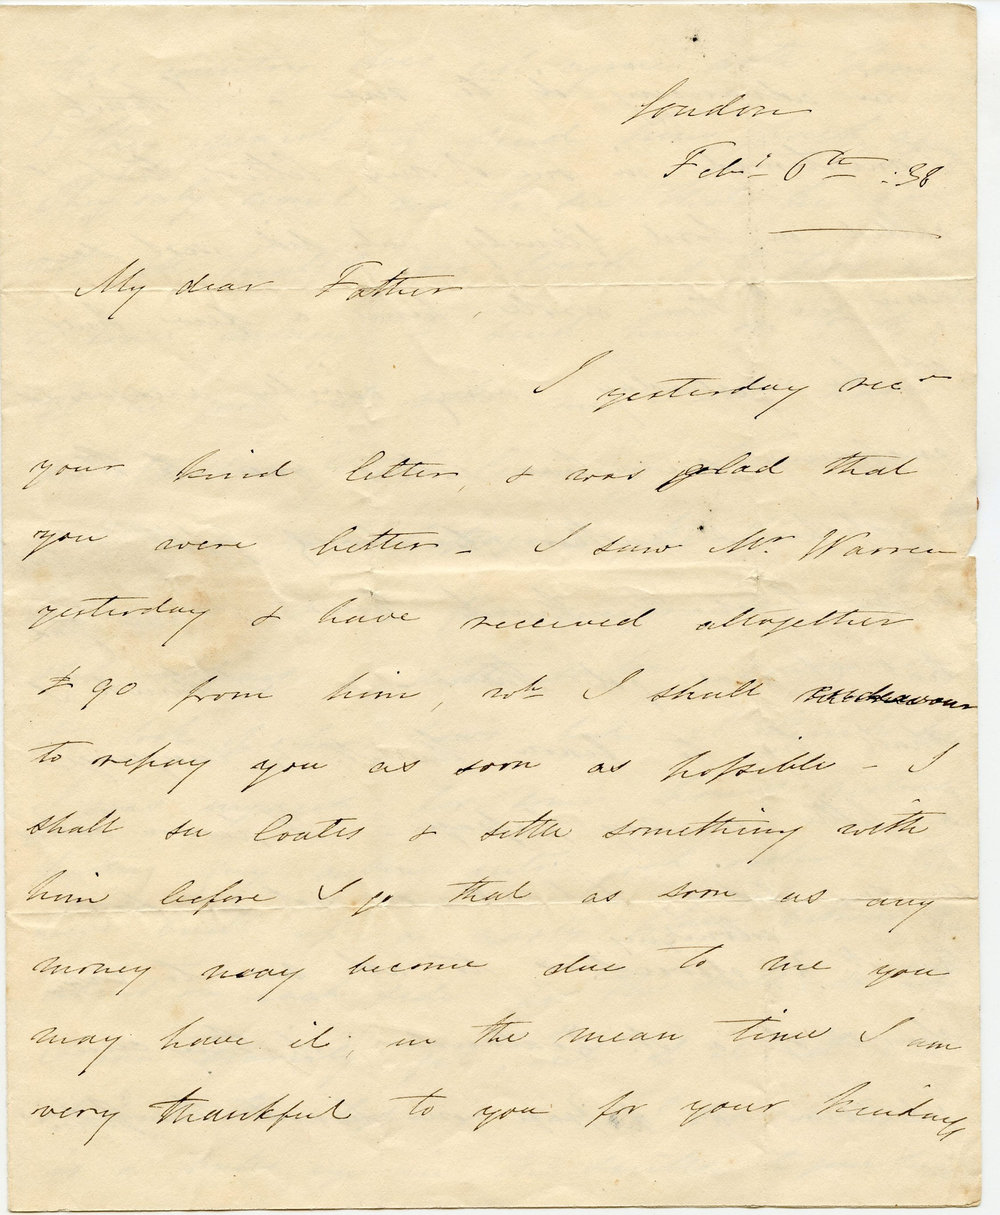 London
Feby 6th :38
My dear Father,
I yesterday recd
your kind letter, & was glad that
you were better - I saw Mr. Warren
yesterday & have received altogether
£90 from him, wh. I shall endeavour
to repay you as soon as possible - I
shall see Coates & settle something with
him before I go that as soon as any
money may become due to me you
may have it, in the mean time I am
very thankful to you for your kindness